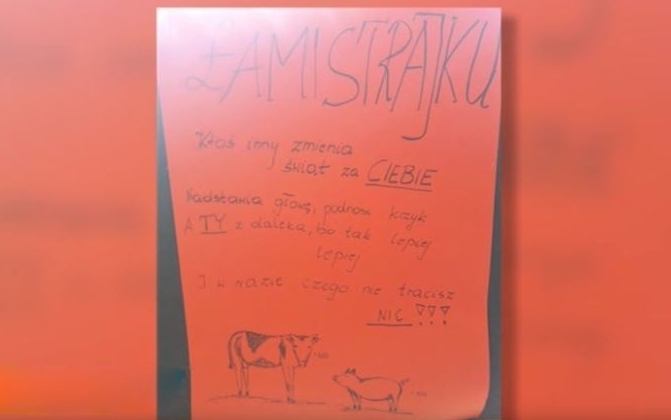 ŁAMISTRAJKU
Ktoś inny zmienia
świat za CIEBIE
Nadstawia głowę, podnosi krzyk
A TY z daleka, bo tak lepiej
lepiej
I w razie czego nie tracisz
NIC !!!